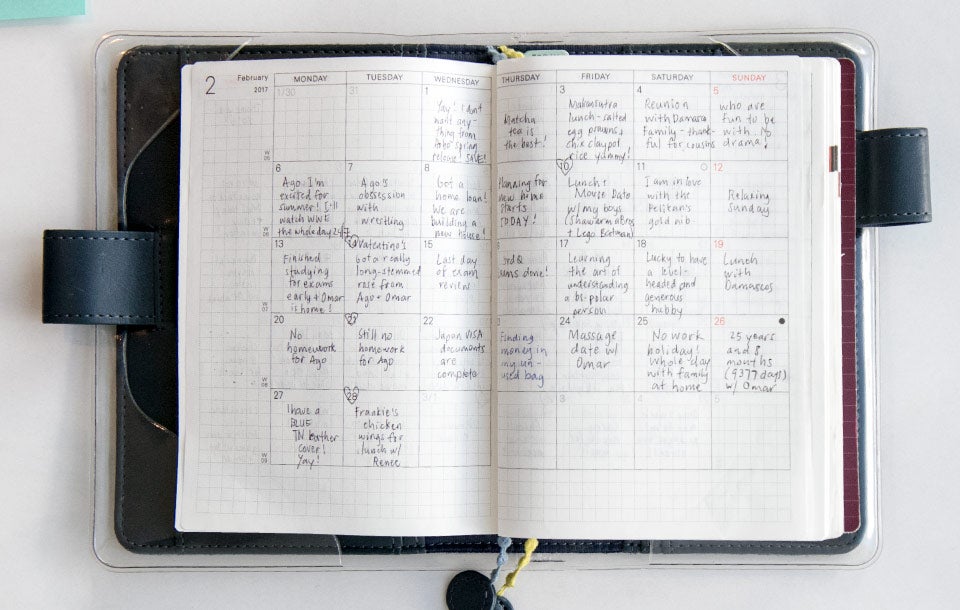 2 February 2017
MONDAY TUESDAY WEDNESDAY THURSDAY FRIDAY SATURDAY SUNDAY
1/30
31
1
Yay! I don't
want any-
thing from
hobo spring
release! SAVE!
Matcha
tea is
the best!
3
Makansutra
lunch - salted
egg prawns +
chix claypot
rice yummy!
4
Reunion
with Damasco
Family - thank-
ful for cousins
5
who are
fun to be
with. No
drama!
W
05
6
Ago: I'm
excited for
summer! I'll
watch WWE
the whole day 24/7
7
Ago's
obsession
with
wrestling
8
Got a
home loan!
We are
building a
new house!
Planning for
new home
starts
TODAY!
10
Lunch +
Movie Date
w/ my boys
(Shawarma Bros
+ Lego Batman)
11
I am in love
with the
Pelikan's
gold nib
12
Relaxing
Sunday
W
06
13
Finished
studying
for exams
early + Omar
is home!
14
Valentine's
Got a really
long-stemmed
rose from
Ago + Omar
15
Last day
of exam
review
3rd Q
done!
17
Learning
the art of
understanding
a bi-polar
person
18
Lucky to have
a level-
headed and
generous
hubby
19
Lunch
with
Damascos
W
07
20
No
homework
for Ago
21
Still no
homework
for Ago
22
Japan VISA
documents
are
complete
Finding
money in
my un-
used bag
24
Massage
date w/
Omar
25
No work
holiday!
Whole day
with family
at home
26
25 years
and 8
months
(9377 days)
w/ Omar
W
08
27
I have a
BLUE
TN leather
cover!
Yay!
28
Frankie's
chicken
wings for
lunch w/
Renee
3/1
3
4
5
W
09